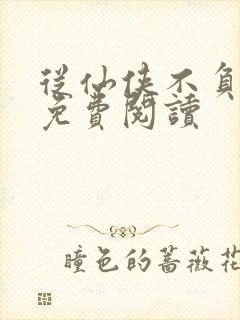 從仙俠不負
免費閱讀
瞳色的薔薇花